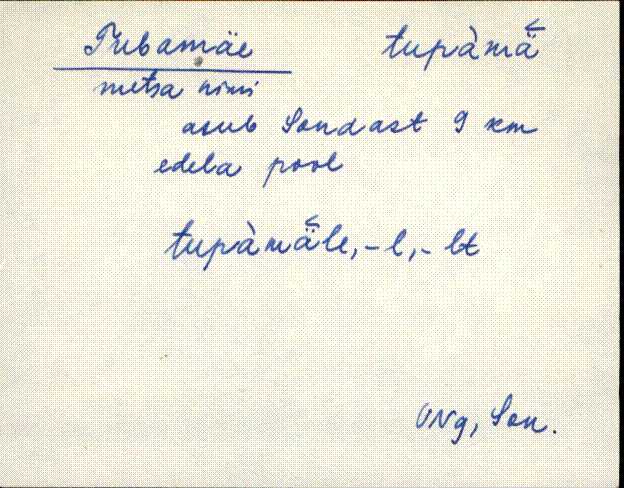 Tubamäe tupàmä̆
metsa nimi
asub Sondast 9 km
edela pool
tupàmä̆le, -l, -lt
VNg, Son.